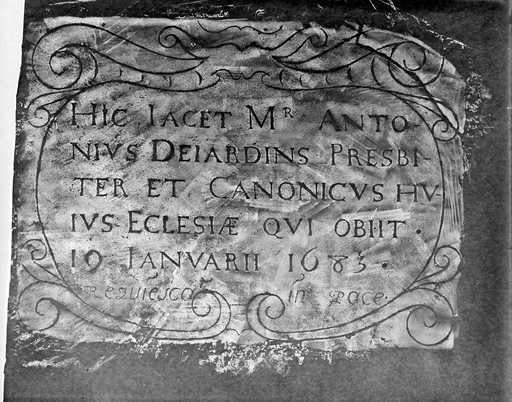 HIC IACET Mᴿ ANTO-
NIVS DEIARDINS PRESBI-
TER ET CANONICVS HV-
IVS ECLESIÆ QVI OBIIT ·
19 IANVARII 1683 ·
Requiesca in pace